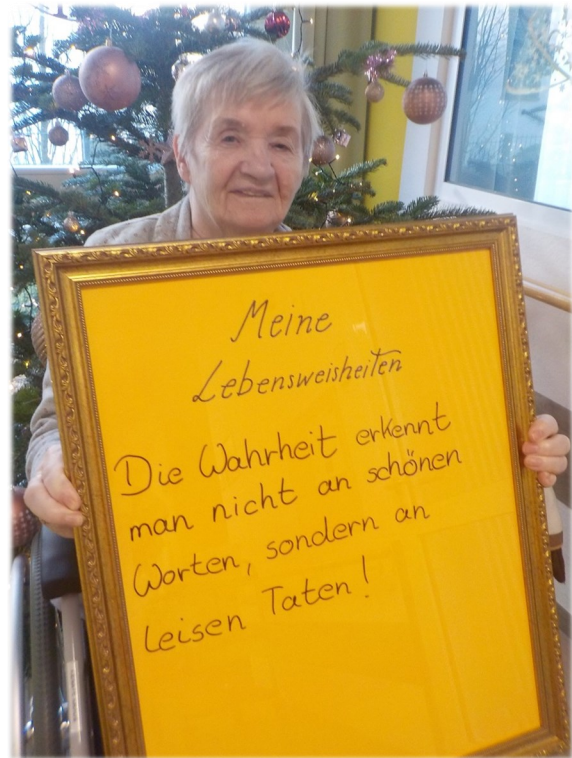 Meine
Lebensweisheiten
Die Wahrheit erkennt
man nicht an schönen
Worten, sondern an
leisen Taten!